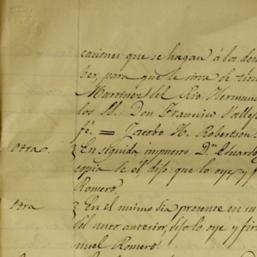 caciones que se hagan á los
ber, para que le sirva de
Martinez del Rio Herman
los SS. Don Francisco Vallej
fé. = Jacobo H. Robertson
Otra. En seguida impuesto Dn. Eduardo
copia de él dijo: que lo oye y f
Romero,
Otra En el mismo dia presente en
del auto anterior, dijo lo oye y fir
nuel Romero.